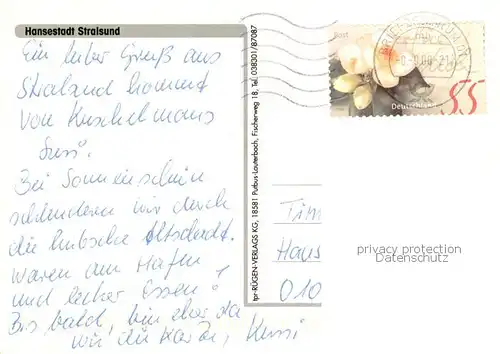 Hansestadt Stralsund
Ein lieber Gruß aus
Stralsund kommt
von
Bei Sonnenschein
schlenderten wir durch
die hübsche Altstadt.
Waren am Hafen
und lecker Essen!
Bis bald, bin eher da
wie die Karte,
tpr-RÜGEN-VERLAGS KG, 18581 Putbus-Lauterbach, Fischerweg 18, Tel. 038301/87087
Post
Deutschland
55
Tim
Haus
010
privacy protection
Datenschutz